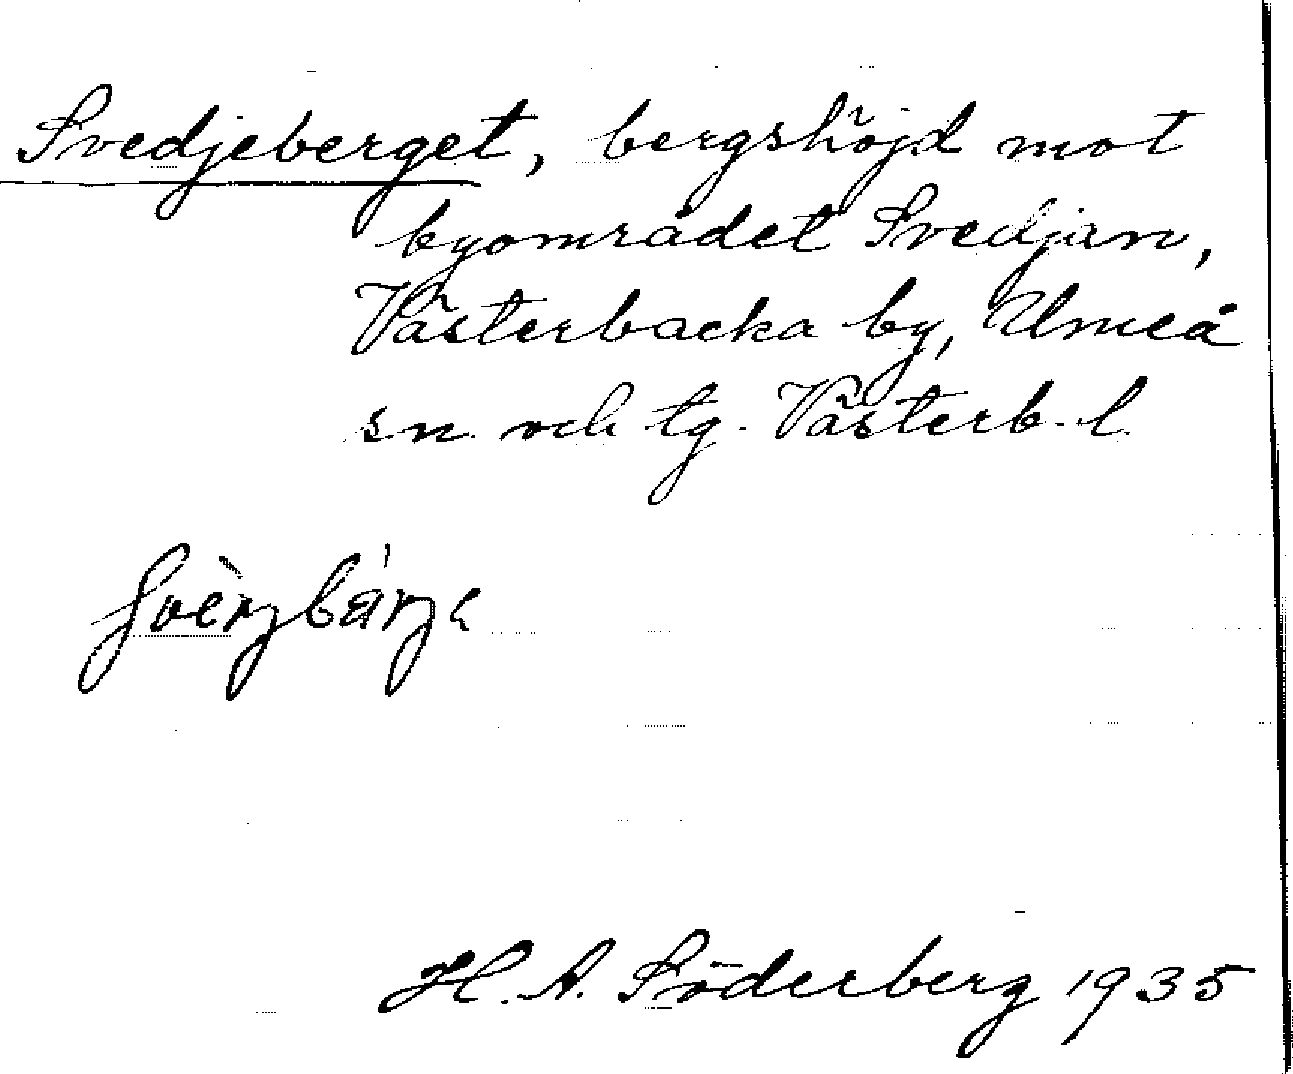 Svedjeberget, bergshöjd mot
byområdet Svedjan,
Västerbacka by, Umeå
sn och tg. Västerb. l.
H. A. Söderberg 1935